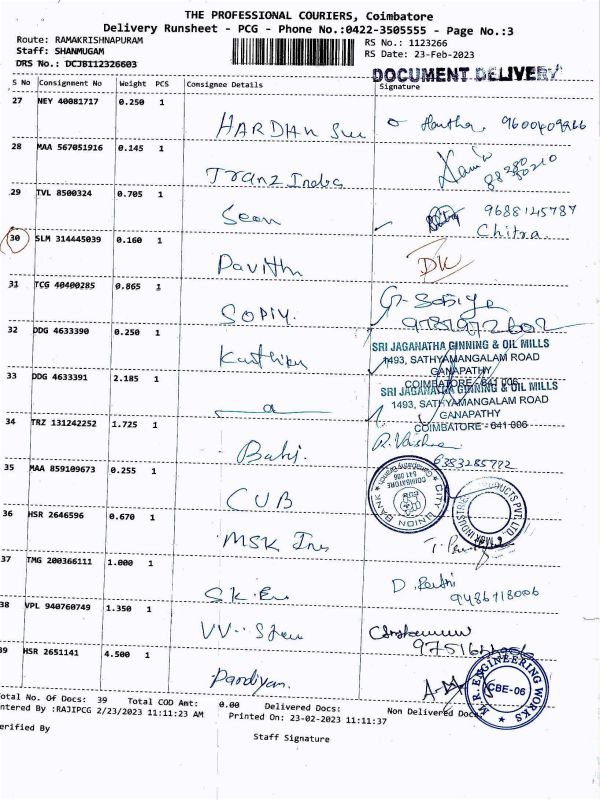 THE PROFESSIONAL COURIERS, Coimbatore
Delivery Runsheet - PCG - Phone No.:0422-3505555 - Page No.:3
Route: RAMAKRISHNAPURAM
Staff: SHANMUGAM
DRS No.: DCJB112326603
RS No.: 1123266
RS Date: 23-Feb-2023
DOCUMENT DELIVERY
S No Consignment No Weight PCS Consignee Details Signature
27 NEY 40081717 0.250 1
HARDIAN
28 MAA 567051916 0.145 1
Tranz India
29 TVL 8500324 0.705 1
Seon 9688145787
Chitra.
30 SLM 314445039 0.160 1
Pavithu DK
31 TCG 40400285 0.865 1
SOPIY. G. Sobiya
32 DDG 4633390 0.250 1
SRI JAGANATHA GINNING & OIL MILLS
1493, SATHYAMANGALAM ROAD
GANAPATHY
COIMBATORE - 641 006
33 DDG 4633391 2.185 1
SRI JAGANATHA GINNING & OIL MILLS
1493, SATHYAMANGALAM ROAD
GANAPATHY
COIMBATORE - 641 006
34 TRZ 131242252 1.725 1
6383285772
35 MAA 859109673 0.255 1
CUB
CITY UNION BANK
36 HSR 2646596 0.670 1
MSK
MSK INDUSTRI
PRODUCTS PVT. LTD
37 TMG 200366111 1.000 1
S.K. En
9486718006
38 VPL 940760749 1.350 1
39 HSR 2651141 4.500 1
Pandiyan.
M.R. ENGINEERING WORKS
CBE-06
otal No. Of Docs: 39 Total COD Amt: 0.00 Delivered Docs: Non Delivered Docs
ntered By :RAJIPCG 2/23/2023 11:11:23 AM Printed On: 23-02-2023 11:11:37
erified By
Staff Signature